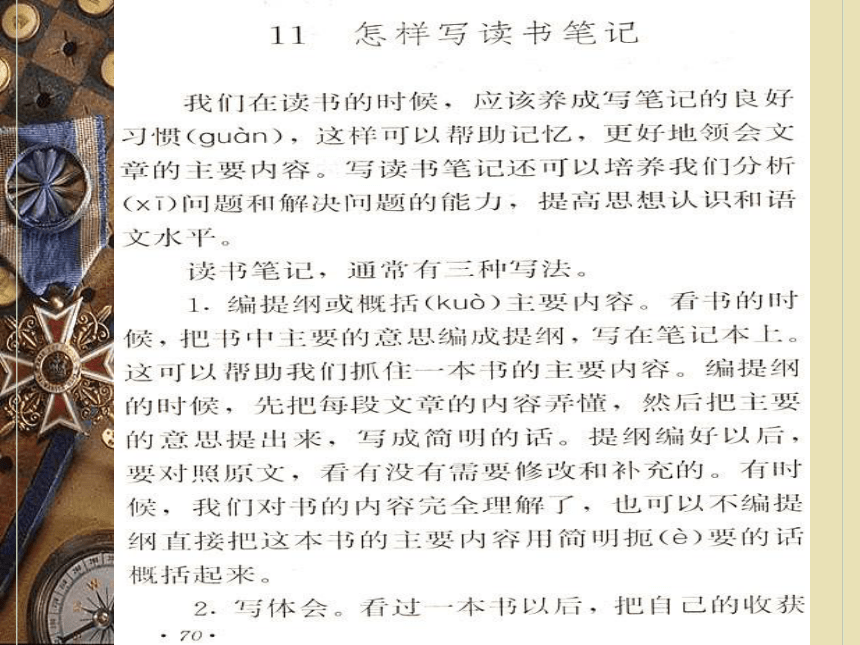 11 怎样写读书笔记
我们在读书的时候，应该养成写笔记的良好
习惯(guàn)，这样可以帮助记忆，更好地领会文
章的主要内容。写读书笔记还可以培养我们分析
(xī)问题和解决问题的能力，提高思想认识和语
文水平。
读书笔记，通常有三种写法。
1. 编提纲或概括(kuò)主要内容。看书的时
候，把书中主要的意思编成提纲，写在笔记本上。
这可以帮助我们抓住一本书的主要内容。编提纲
的时候，先把每段文章的内容弄懂，然后把主要
的意思提出来，写成简明的话。提纲编好以后，
要对照原文，看有没有需要修改和补充的。有时
候，我们对书的内容完全理解了，也可以不编提
纲直接把这本书的主要内容用简明扼(è)要的话
概括起来。
2. 写体会。看过一本书以后，把自己的收获
·70·